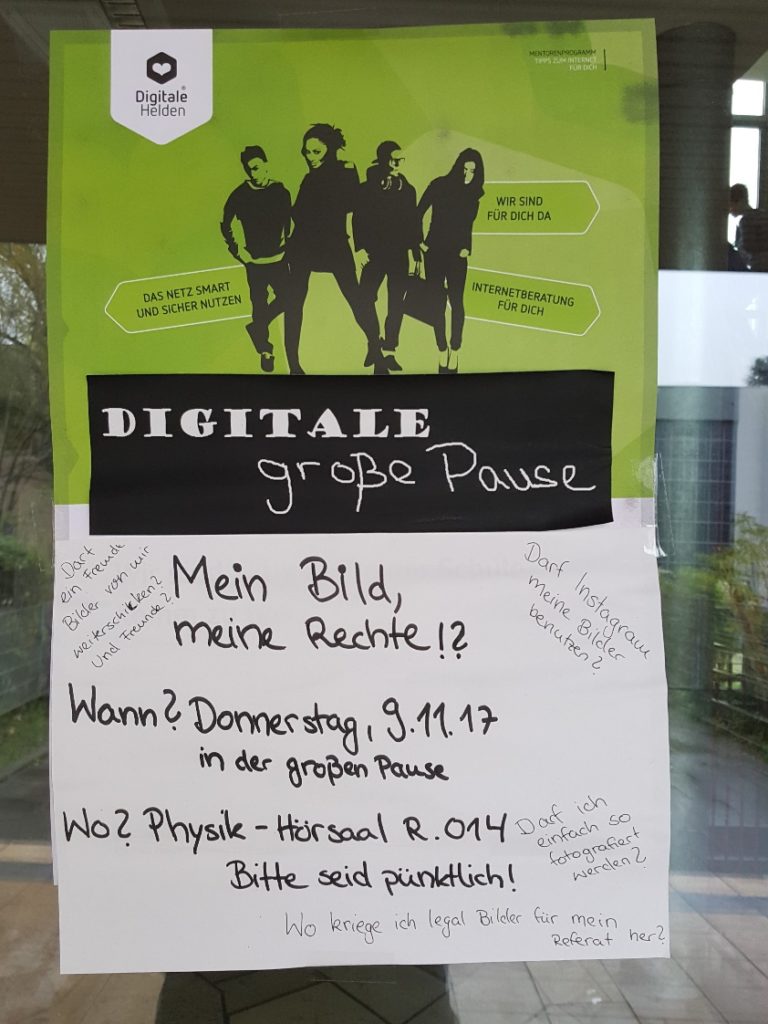 Digitale
Helden
MENTORENPROGRAMM
TIPPS ZUM INTERNET
FÜR DICH
WIR SIND
FÜR DICH DA
DAS NETZ SMART
UND SICHER NUTZEN
INTERNETBERATUNG
FÜR DICH
DIGITALE
große Pause
Darf
ein Freund
Bilder von mir
weiterschicken?
Und Freunde?
Mein Bild,
meine Rechte!?
Darf Instagram
meine Bilder
benutzen?
Wann? Donnerstag, 9.11.17
in der großen Pause
Wo? Physik-Hörsaal R. 014
Bitte seid pünktlich!
Darf ich
einfach so
fotografiert
werden?
Wo kriege ich legal Bilder für mein
Referat her?